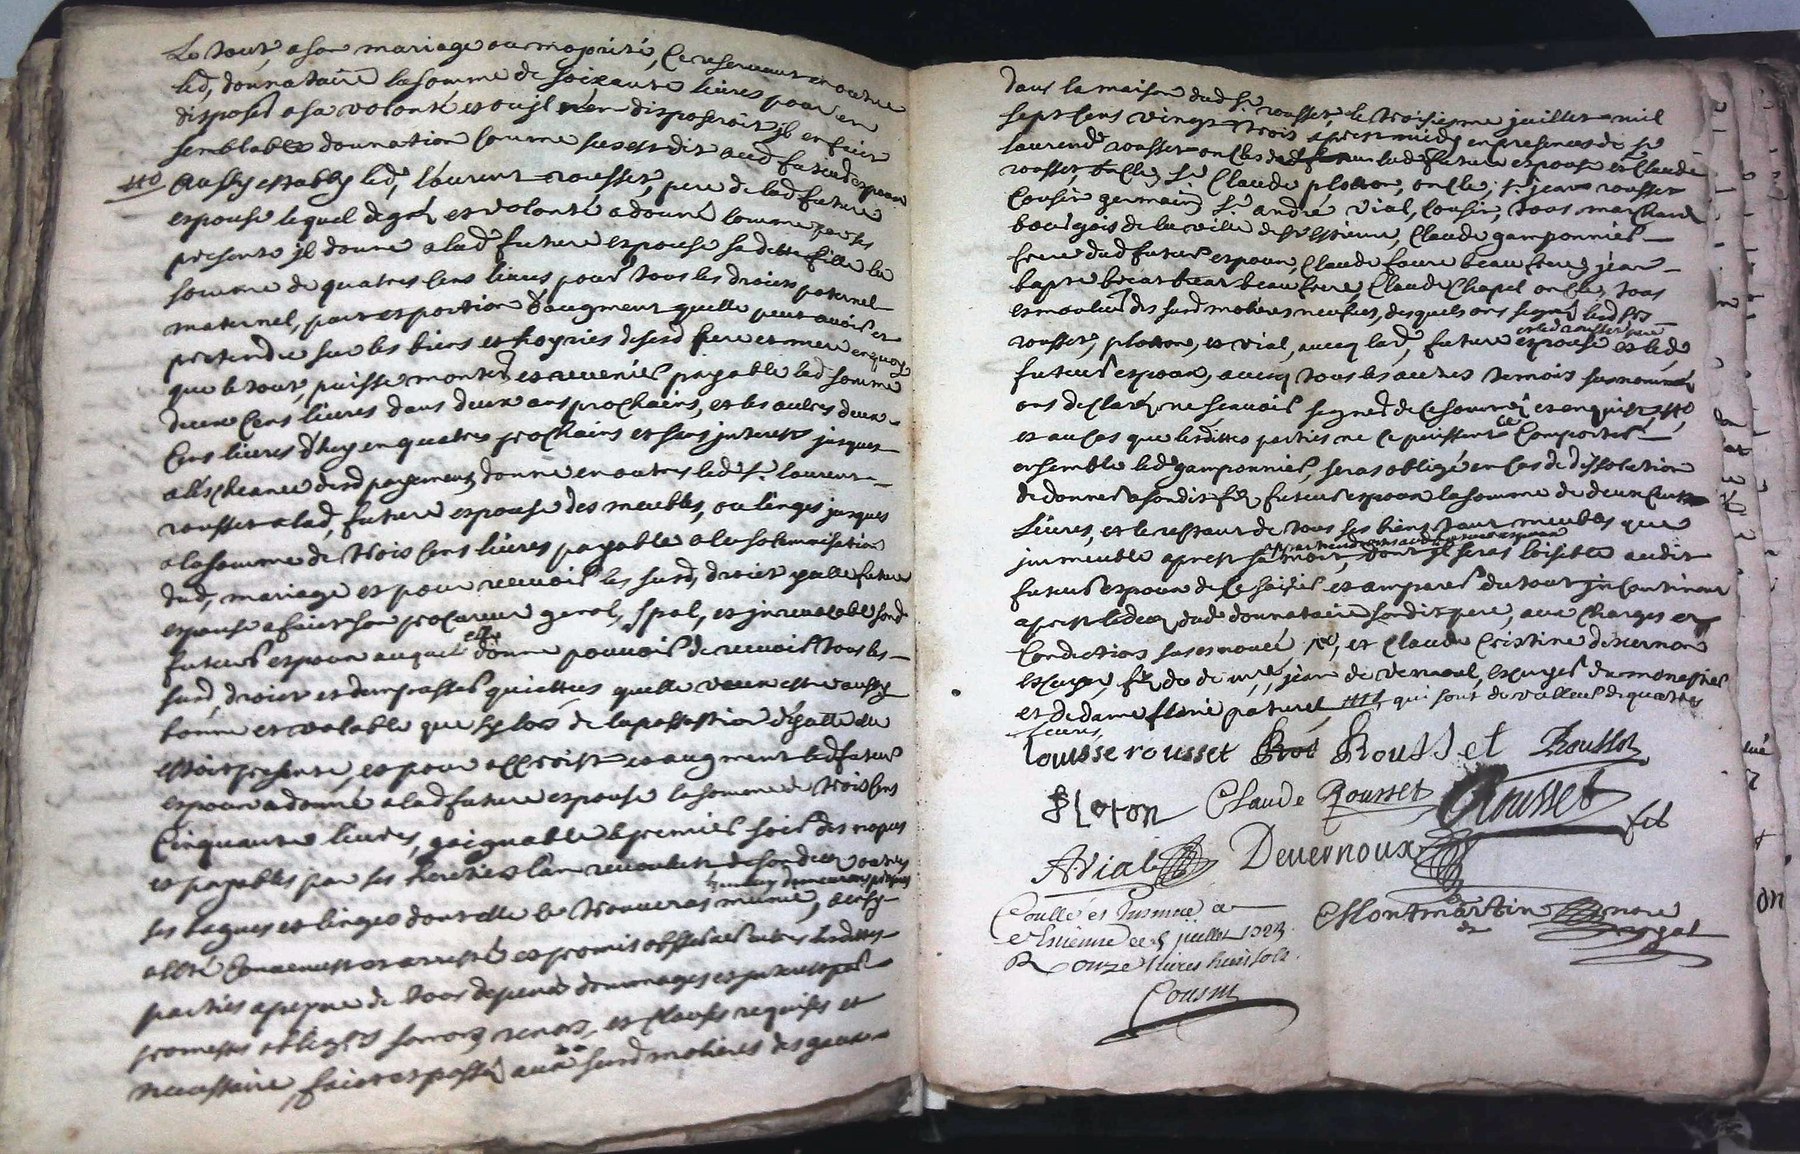 Le tout, a son mariage ou majorité, Ce reservant en outre
led, donnataire la somme de soixante livres pour en
disposer a sa volonté et ou jl n'en disposeroit jl en fait
semblable donnation Comme sus est dit aud futur espoux
Aussy estably led, s.r laurent rousset, pere de lad future
espouse lequel de gré et volonté a donné comme par ces
presente jl donne a lad future espouse sa ditte fille la
somme de quatres Cens livres pour tous les droits paternel
maternel, part et portion d'augment quelle peut avoir et
pretendre sur les biens et hoyries desd pere et mere en quoy
que le tout, puisse monter et revenir payable lad somme
deux Cens livres dans deux ans prochains, et les autres deux
Cens livres d'huy en quatres prochains et sans jnterets jusques
a l'escheance desd payements donne en outres led s.r laurent
rousset a lad, future espouse des meubles, ou linges jusques
a la somme de trois Cens livres payable a la solemnisation
dud, mariage et pour recevoir les susd, droits ycelle future
espouse a fait son procureur general, spal, et jrrevocable sond
futur espoux auquel elle donne pouvoir de recevoir tous les
susd, droits et d'en passer quittus quelle veux estre aussy
bonne et valable que sy lors de la passassion d'icelle elle
estoit presente, et pour accroist et augment led futur
espoux a donné a lad future espouse la somme de trois Cens
Cinquante livres, gaignable le premier soir des nopces
et payables par ses heritiers l'an revoulu de son deces outres
ses bagues et linges dont elle se trouveras munie, ainsy
a esté Convenus et arresté et promis observer entre lesdittes
parties a peyne de tous depens dommages et jnterets par
promesses obligés soumis renons, et Clauses requises et
necessaire, fait et passé aux susd molieres des gaux
dans la maison dud s.r rousset, le troisieme juillet mil
sept Cens vingt trois apres midy en presences de s.r
laurend rousset oncles de lad future espouse et Claude
rousset oncle, s.r Claude plotton, oncle, s.r jean rousset
Cousin germain s.r andré vial, Cousin, tous marchand
bourgois de la ville de s.t estienne, Claude gamponnier
frere dud futur espoux, Claude faure beau frere, jean
bapte beau frere, Claude Chapel oncle, tous
desquels ons signé lesd srs
rousset, plotton, et vial, avecq lad, future espouse et led
et led rousset pere
futur espoux, avecq tous les autres temois susnommés
ons declaré ne scavoir signer de ce sommé et enquis
et au Cas que lesdittes parties ne ce puissent Comporter
ensemble led gamponnier, seras obligé en Cas de dissolution
de donner a son dit fils futur espoux la somme de deux Cents
livres, et le restant de tous ses biens tant meubles que
jmmeuble apres sa mort, dont jl seras loisible audit
futur espoux de Ce saisir et amparer du tout jn Continant
apres le deces dud donnataire sondit pere, aux Charges et
Condictions sus enoncé, et Claude Cristine devernoux
escuyer, fils de deffunt m.re jean de vernoux, escuyer du monastier
et de dame florie paturel, qui sont de valleur de quattres
livres,
louisse rousset Rousset Rousset
Ploton Claude Rousset Rousset fils
AVial Devernoux
Coullé et Jnsinué a
s.t Estienne ce 5 juillet 1723.
R onze livres huit sols.
Cousin
CMontmartin no.re royal